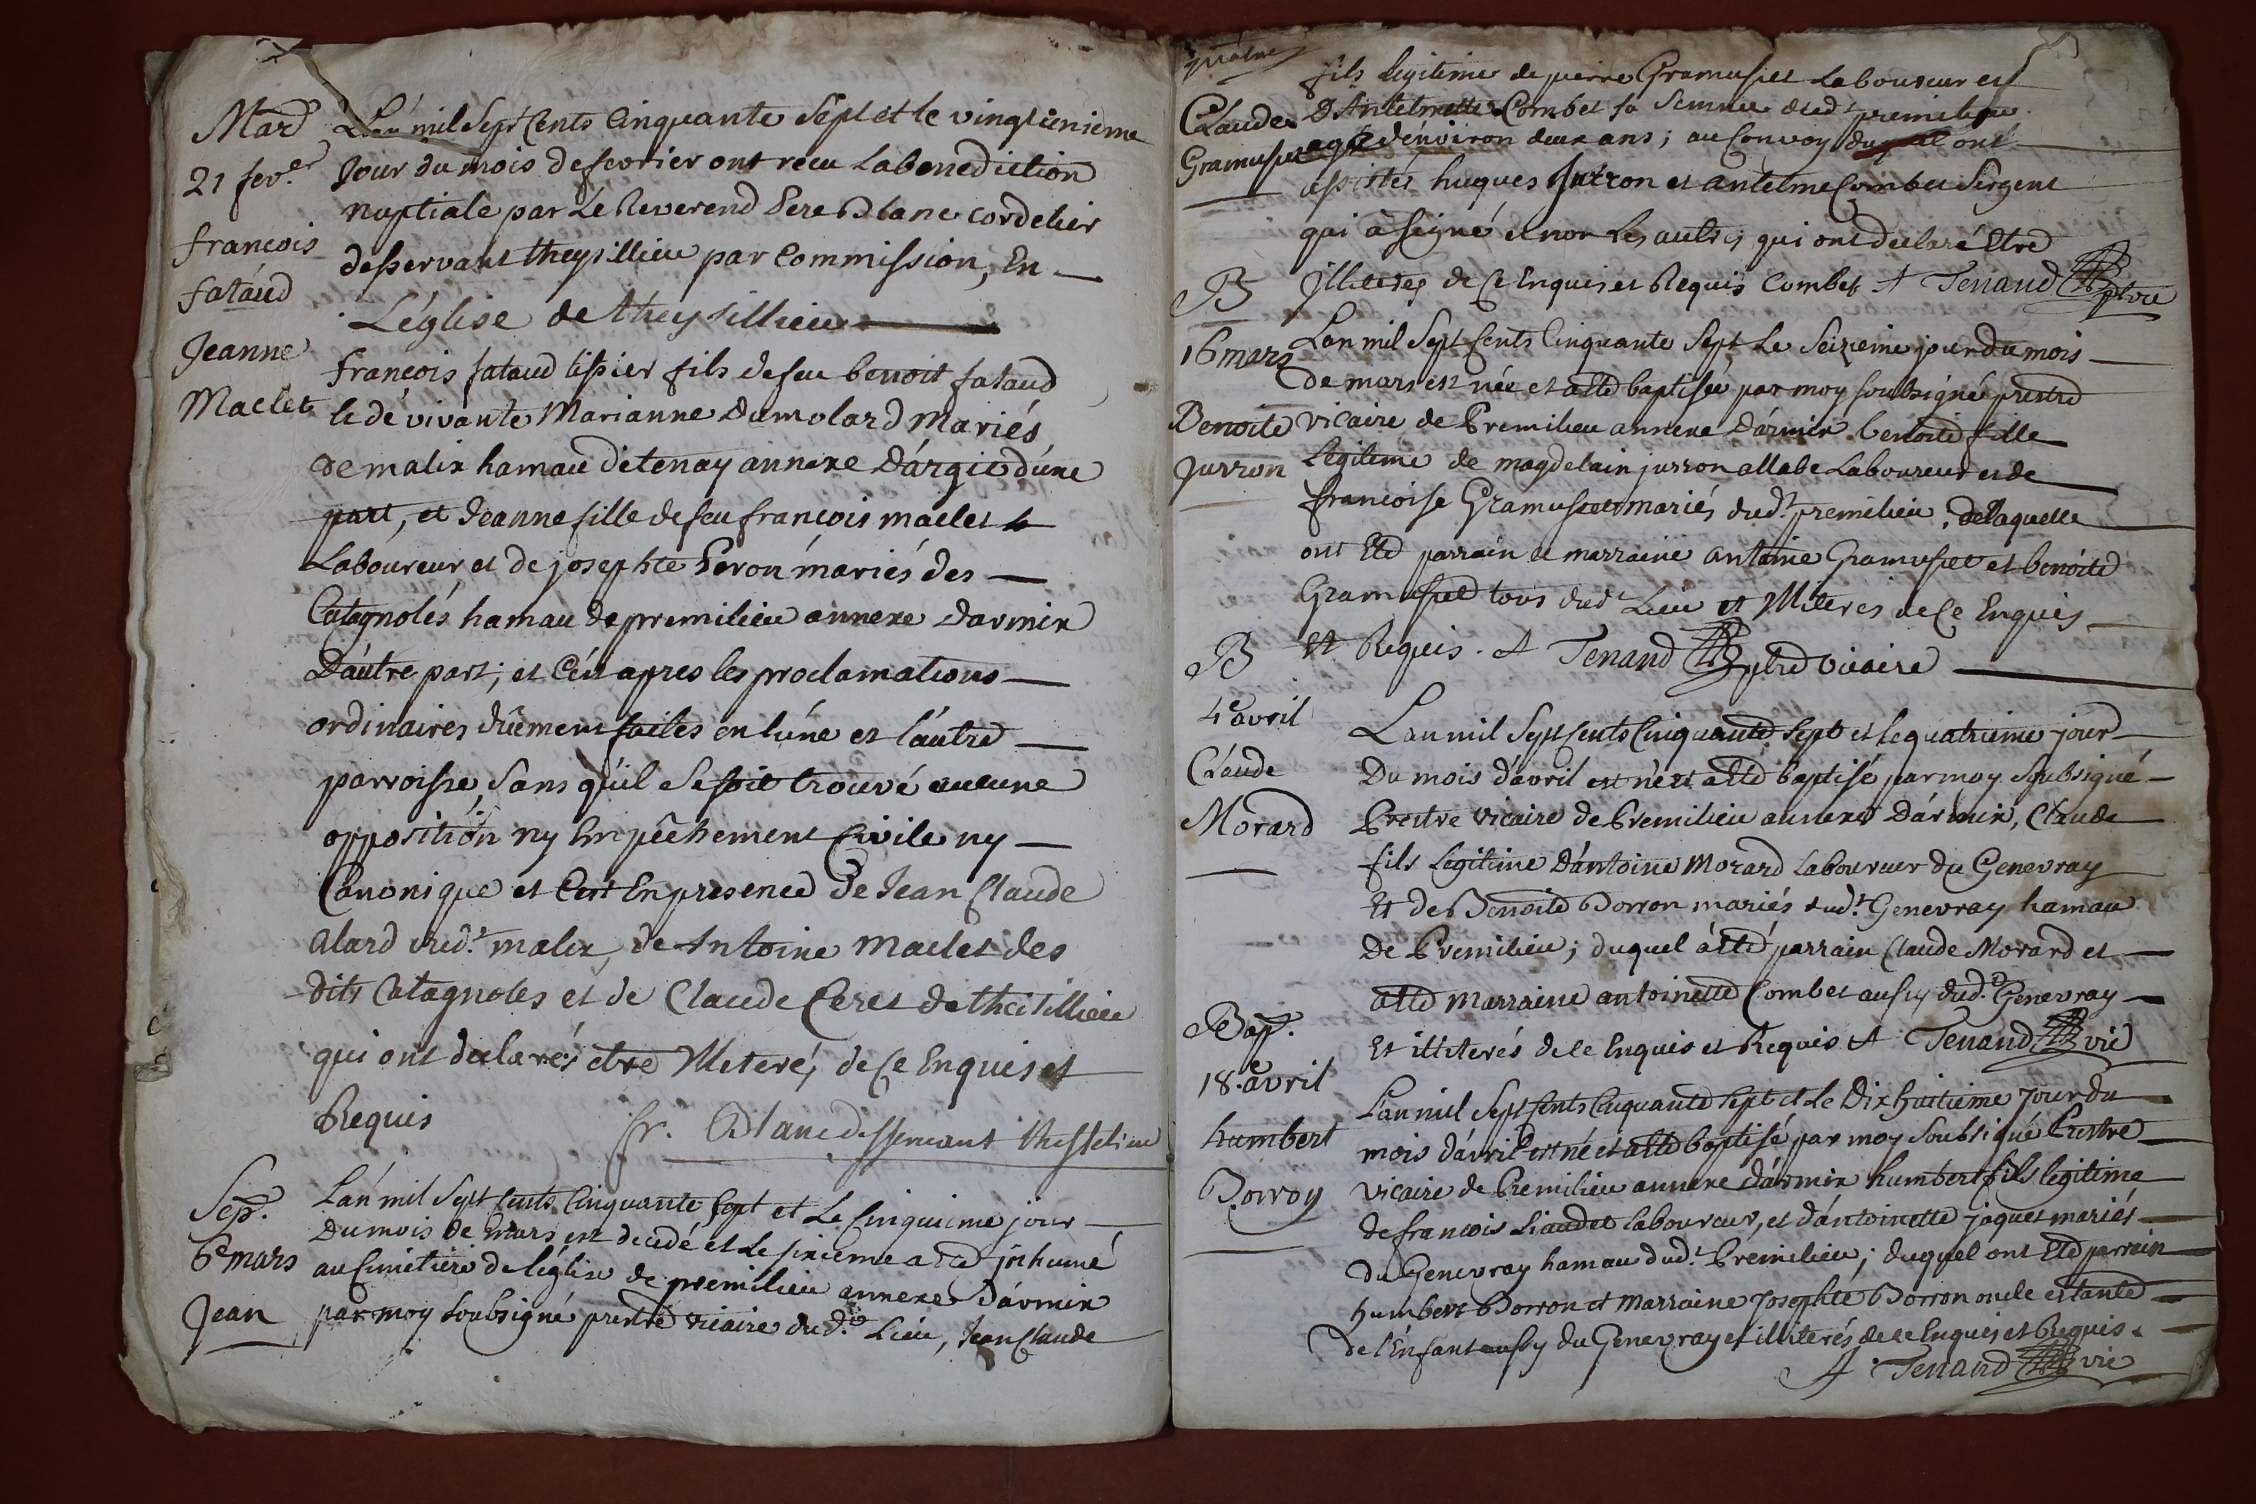 Mard
21 fev.er
francois
fataud
Jeanne
Maclet
L'an mil Sept Cents Cinquante Sept et le vingt unieme
Jour du mois de fevrier ont recu La benediction
nuptiale par Le Reverend Pere Blanc cordelier
desservant theysillieu par Commission, En
L'église de theysillieu
francois fataud tissier fils de feu benoit fataud
et de vivante Marianne Dumolard Mariés
de malix hamau de tenay annexe D'argit d'une
part, et Jeanne fille de feu françois maclet
Laboureur et de josephte Peron mariés des
Catagnolés hamau de premilieu annexe d'armix
D'autre part; et C'est apres les proclamations
ordinaires dûement faites en l'une et l'autre
parroisse, Sans qu'il se soit trouvé aucune
opposition ny Empêchement Civile ny
Canonique et C'est En presence de Jean Claude
alard dud.t malix, de Antoine Maclet des
dits Catagnoles et de Claude Ceret de theisillieu
qui ont declarés etre Illeteré, de Ce Enquis et
Requis
fr. Blanc desservant thesselieu
Sep.
6e mars
Jean
L'an mil Sept Cents Cinquante Sept et Le Cinquieme jour
Du mois de Mars est decedé et Le sixieme a été inhumé
au Cimétiere de l'église de premilieu annexe D'armix
par moy soubsigné prestre vicaire dud.t Lieu, Jean Claude
Claude
Gramuset
fils legitime de pierre Gramuset Laboureur et
D'Antelmette Combet sa femme dud.t premilieu
agé d'environ deux ans; au Convoy duquel ont
assistés huques Jurron et antelme Combet Sergent
qui à Signé et non Les autres qui ont declaré Etre
Illiteres de Ce Enquis et Requis Combet A Tenand ptre
B
16 mars
Benoite
Jurron
L'an mil Sept Cents Cinquante Sept Le Seizieme jour du mois
de mars est née et a été baptisée par moy soubsigné prestre
vicaire de Premilieu annexe D'armix benoite fille
Legitime de magdelain jurron Laboureur et de
francoise Gramuset mariés dud.t premilieu, de laquelle
ont Eté parrain et marraine antoine Gramuset et benoite
Gramuset tous dud.t Lieu et Illiteres de Ce Enquis
Et Requis. A Tenand ptre vicaire
B
4e avril
Claude
Morard
L'an mil Sept Cents Cinquante Sept et Le quatrieme jour
Du mois d'avril est né et a été baptisé par moy soubsigné
Prestre vicaire de Premilieu annexe D'armix, Claude
fils Legitime D'antoine Morard Laboureur du Genevray
Et de Benoite Borron mariés dud.t Genevray hamau
de Premilieu; duquel à été parrain Claude Morard et
a été marraine antoinette Combet aussy dud.t Genevray
Et illiterés de ce Enquis et Requis A Tenand vic
Bap.
18.e avril
humbert
Borron
L'an mil Sept Cents Cinquante Sept et Le Dix huitieme Jour du
mois d'avril est né et a été baptisé par moy Soubsigné Prestre
vicaire de Premilieu annexe d'armix humbert fils legitime
de francois Liaudet laboureur, et d'antoinette jaquet mariés
du Genevray hamau dud.t Premilieu; duquel ont Eté parrain
humbert Borron et Marraine Josephte Borron oncle et tante
de l'Enfant aussy du Genevray et illiterés de ce Enquis et Requis
A Tenand vic